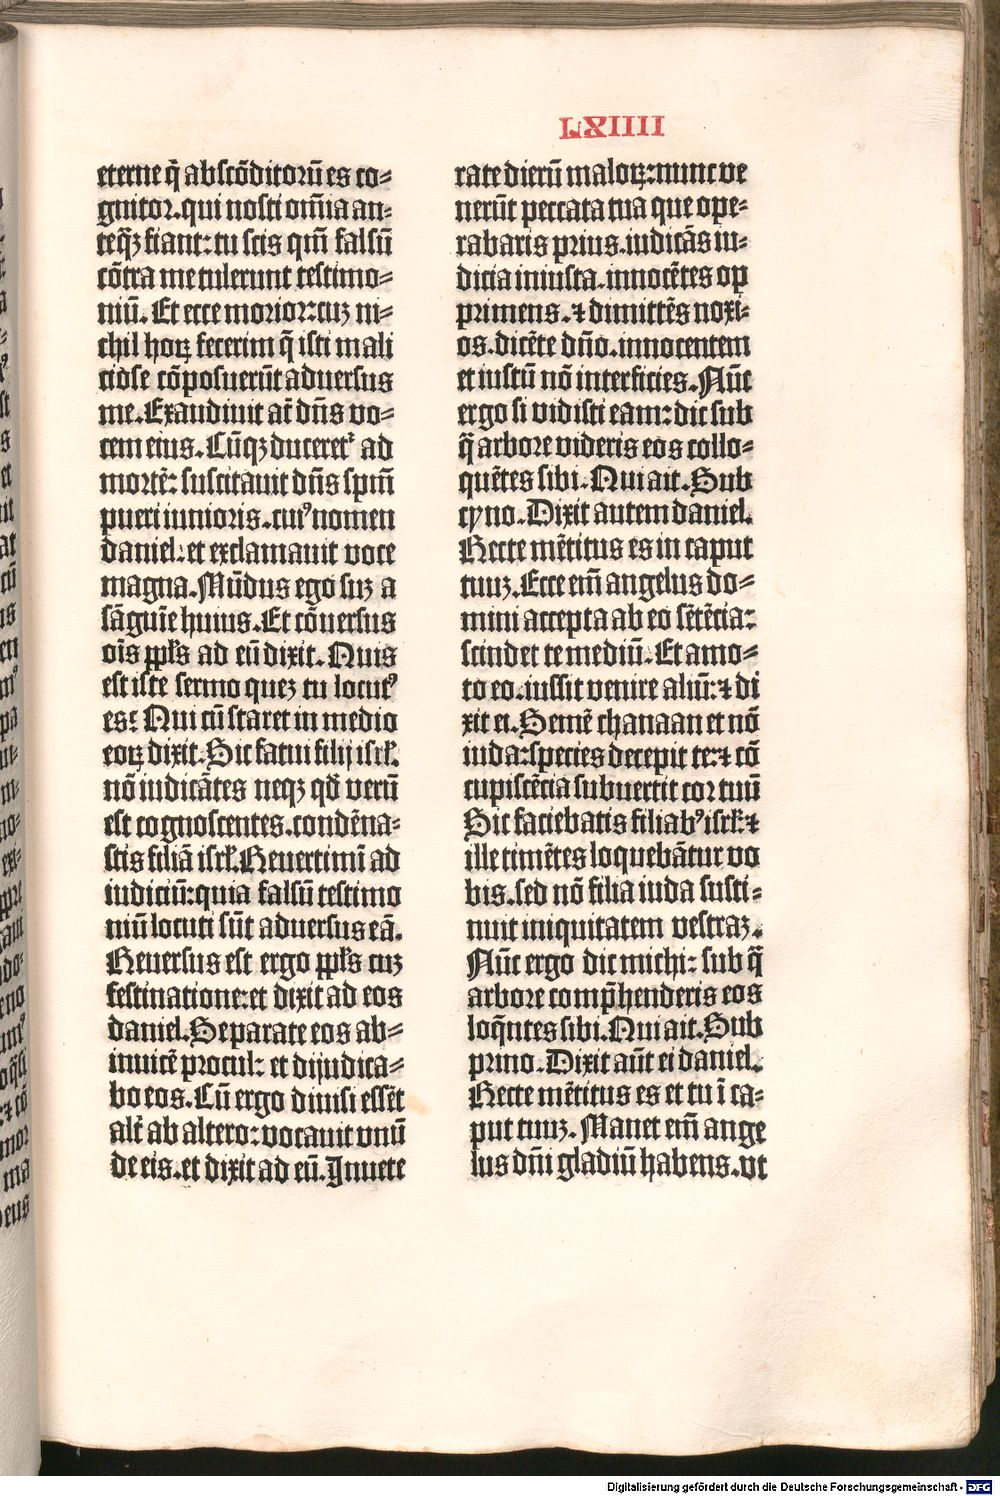 LXIIII
eterne q̄ abscōditorū es co⸗
gnitor. qui nosti om̄ia an⸗
teqꝫ fiant: tu scis qm̄ falsū
cōtra me tulerunt testimo⸗
niū. Et ecce morior: cuꝫ ni⸗
chil hoꝝ fecerim q̄ isti mali
ciose cōposuerūt aduersus
me. Exaudiuit at̄ dn̄s vo⸗
cem eius. Cūqꝫ duceretꝰ ad
mortē: suscitauit dn̄s spm̄
pueri iunioris. cuiꝰ nomen
daniel: et exclamauit voce
magna. Mūdus ego suꝫ a
sāguīe huius. Et cōuersus
oīs ppl̄s ad eū dixit. Quis
est iste sermo queꝫ tu locutꝰ
es: Qui cū staret in medio
eoꝝ dixit. Sic fatui filij isrl̄.
nō iudicātes neqꝫ qd̄ verū
est cognoscentes. condēna⸗
stis filiā isrl̄. Reuertimī ad
iudiciū: quia falsū testimo
niū locuti sūt aduersus eā.
Reuersus est ergo ppl̄s cuꝫ
festinatione: et dixit ad eos
daniel. Separate eos ab⸗
inuicē procul: et dijudica⸗
bo eos. Cū ergo diuisi essēt
alt̄ ab altero: vocauit vnū
de eis. et dixit ad eū. Inuete
rate dierū maloꝝ: nunc ve
nerūt peccata tua que ope⸗
rabaris prius. iudicās iu⸗
dicia iniusta. innocētes op
primens. ⁊ dimittēs noxi⸗
os. dicēte dn̄o. innocentem
et iustū nō interficies. Nūc
ergo si vidisti eam: dic sub
q̄ arbore videris eos collo⸗
quētes sibi. Qui ait. Sub
cyno. Dixit autem daniel.
Recte mētitus es in caput
tuuꝫ. Ecce em̄ angelus do⸗
mini accepta ab eo sētētia:
scindet te mediū. Et amo⸗
to eo. iussit venire aliū: ⁊ di
xit ei. Semē chanaan et nō
iuda: species decepit te: ⁊ cō
cupiscētia subuertit cor tuū
Sic faciebatis filiabꝰ isrl̄: ⁊
ille timētes loquebātur vo
bis. sed nō filia iuda susti⸗
nuit iniquitatem vestraꝫ.
Nūc ergo dic michi: sub q̄
arbore comp̄henderis eos
loq̄ntes sibi. Qui ait. Sub
prino. Dixit aūt ei daniel.
Recte mētitus es et tu ī ca⸗
put tuuꝫ. Manet em̄ ange
lus dn̄i gladiū habens. vt
Digitalisierung gefördert durch die Deutsche Forschungsgemeinschaft - DFG